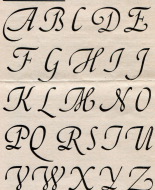 A B C D E
F G H I J
K L M N O
P Q R S T U
V W X Y Z